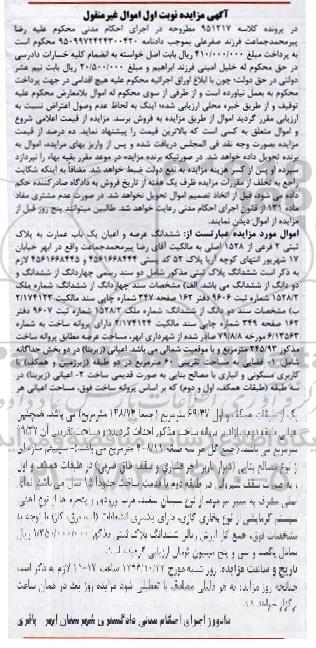 آگهی مزایده نوبت اول اموال غیرمنقول
در پرونده کلاسه ۹۵۱۲۱۷ مطروحه در اجرای احکام مدنی محکوم علیه رضا
پیرمحمدجماعت فرزند صفرعلی بموجب دادنامه ۹۵۰۹۹۷۲۴۲۴۲۰۰۴۲۰ محکوم است
به پرداخت مبلغ ۴۱۰/۰۰۰/۰۰۰ ریال بابت اصل خواسته به انضمام کلیه خسارات دادرسی
در حق محکوم له خلیل امینی فرزند ابراهیم و مبلغ ۲۰/۵۰۰/۰۰۰ ریال بابت نیم عشر
دولتی در حق دولت؛ چون با ابلاغ اوراق اجرائیه محکوم علیه هیچ اقدامی در جهت پرداخت
محکوم به بعمل نیاورده است و از طرفی از سوی محکوم له اموال بلامعارض محکوم علیه
توقیف و از طریق خبره محلی ارزیابی شده؛ اینک به لحاظ عدم وصول اعتراض نسبت به
ارزیابی مقرر گردید اموال از طریق مزایده به فروش برسد. مزایده از قیمت اعلامی شروع
و اموال متعلق به کسی است که بالاترین قیمت را پیشنهاد نماید. ده درصد از قیمت
مزایده بصورت وجه نقد فی المجلس دریافت شده و پس از واریز بهای مزایده، اموال به
برنده تحویل داده خواهد شد. در صورتیکه برنده مزایده در موعد مقرر بقیه بهاء را نپردازد
سپرده او پس از کسر هزینه مزایده به نفع دولت ضبط خواهد شد. مضافاً به اینکه شکایت
راجع به تخلف از مقررات مزایده ظرف یک هفته از تاریخ فروش به دادگاه صادرکننده حکم
داده می شود، قبل از اتخاذ تصمیم اموال تحویل نخواهد شد. در صورت عدم مشتری مفاد
ماده ۱۳۱ از قانون اجرای احکام مدنی رعایت خواهد شد. طالبین میتوانند پنج روز قبل از
مزایده از اموال دیدن نمایند.
اموال مورد مزایده عبارتست از: ششدانگ عرصه و اعیان یک باب عمارت به پلاک
ثبتی ۲ فرعی از ۱۵۲۸ اصلی به مالکیت آقای رضا پیرمحمدجماعت واقع در ابهر خیابان
۱۷ شهریور انتهای کوچه آریا پلاک ۵۲ کد پستی ۴۵۶۱۶۶۸۴۴۴ و ۴۵۶۱۶۶۸۴۴۵ لازم
به ذکر است ششدانگ پلاک ثبتی مذکور شامل دو سند رسمی چهاردانگ از ششدانگ و
دو دانگ از ششدانگ می باشد. الف) مشخصات سند چهاردانگ از ششدانگ: شماره ملک
۱۵۲۸/۲ شماره ثبت ۹۶۰۶ دفتر ۱۶۲ صفحه ۳۴۷ شماره چاپی سند مالکیت ۲/۱۷۴۱۲۳
ب) مشخصات سند دودانگ از ششدانگ: شماره ملک ۱۵۲۸/۲ شماره ثبت ۹۶۰۷ دفتر
۱۶۲ صفحه ۳۴۹ شماره چاپی سند مالکیت ۲/۱۷۴۱۲۴ دارای پروانه ساخت به شماره
۶/۱۳۵۶۳ مورخ ۷۹/۸/۸ صادر شده از شهرداری ابهر. مساحت عرصه مطابق پروانه ساخت
مذکور ۲۴۵/۹۳ مترمربع و با وضعیت شمالی می باشد. اعیانی (زیربنا) در دو بخش جداگانه
شامل ۱- فضایی به مساحت تقریبی ۶۰ مترمربع در دو طبقه (زیرزمین و همکف) با
کاربری مسکونی و انباری با مصالح بنایی به صورت قدیمی ساخت ۲- اعیانی (زیربنا) در
سه طبقه (طبقات همکف، اول و دوم) که بر اساس پروانه ساخت فوق، مساحت اعیانی هر
یک از طبقات همکف و اول ۶۹/۴۷ مترمربع (جمعا ۱۳۸/۹۴ مترمربع) می باشد. همچنین
از نوع مصالح بنایی (دیوار باربر آجر فشاری و سقف طاق ضربی) در طبقات همکف و اول
مشخصات فوق، جمع کل ارزش ریالی ششدانگ پلاک ثبتی مذکور ۱/۳۵۰/۰۰۰/۰۰۰ ریال
معادل یکصد و سی و پنج میلیون تومان ارزیابی گردیده است.
تاریخ و ساعت مزایده: روز شنبه مورخ ساعت ۱۱-۱۲ لازم به ذکر است
چنانچه روز مزایده به هر دلیلی مصادف با تعطیلی شود مزایده روز بعد در همان ساعت
برگزار خواهد شد.
دادورز اجرای احکام مدنی دادگستری شهرستان ابهر باقری